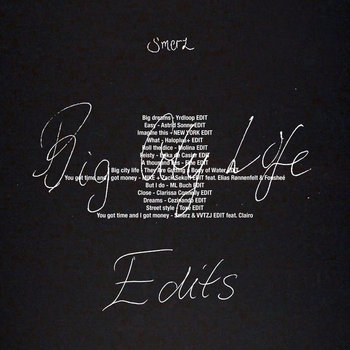 Smerz
Big City Life
Big dreams - Yrdloop EDIT
Easy - Astrid Sonne EDIT
Imagine this - NEW YORK EDIT
What - Haloplus+ EDIT
Roll the dice - Molina EDIT
Feisty - They Are Gutting
A thousand lies - Fine EDIT
Big city life - They Are Gutting a Body of Water EDIT
You got time and I got money - MIKE + Zack Sekoff EDIT feat. Elias Rønnenfelt & Fousheé
But I do - ML Buch EDIT
Close - Clarissa Connelly EDIT
Dreams - Cezinando EDIT
Street style - Toxe EDIT
You got time and I got money - Smerz & VVTZJ EDIT feat. Clairo
Edits